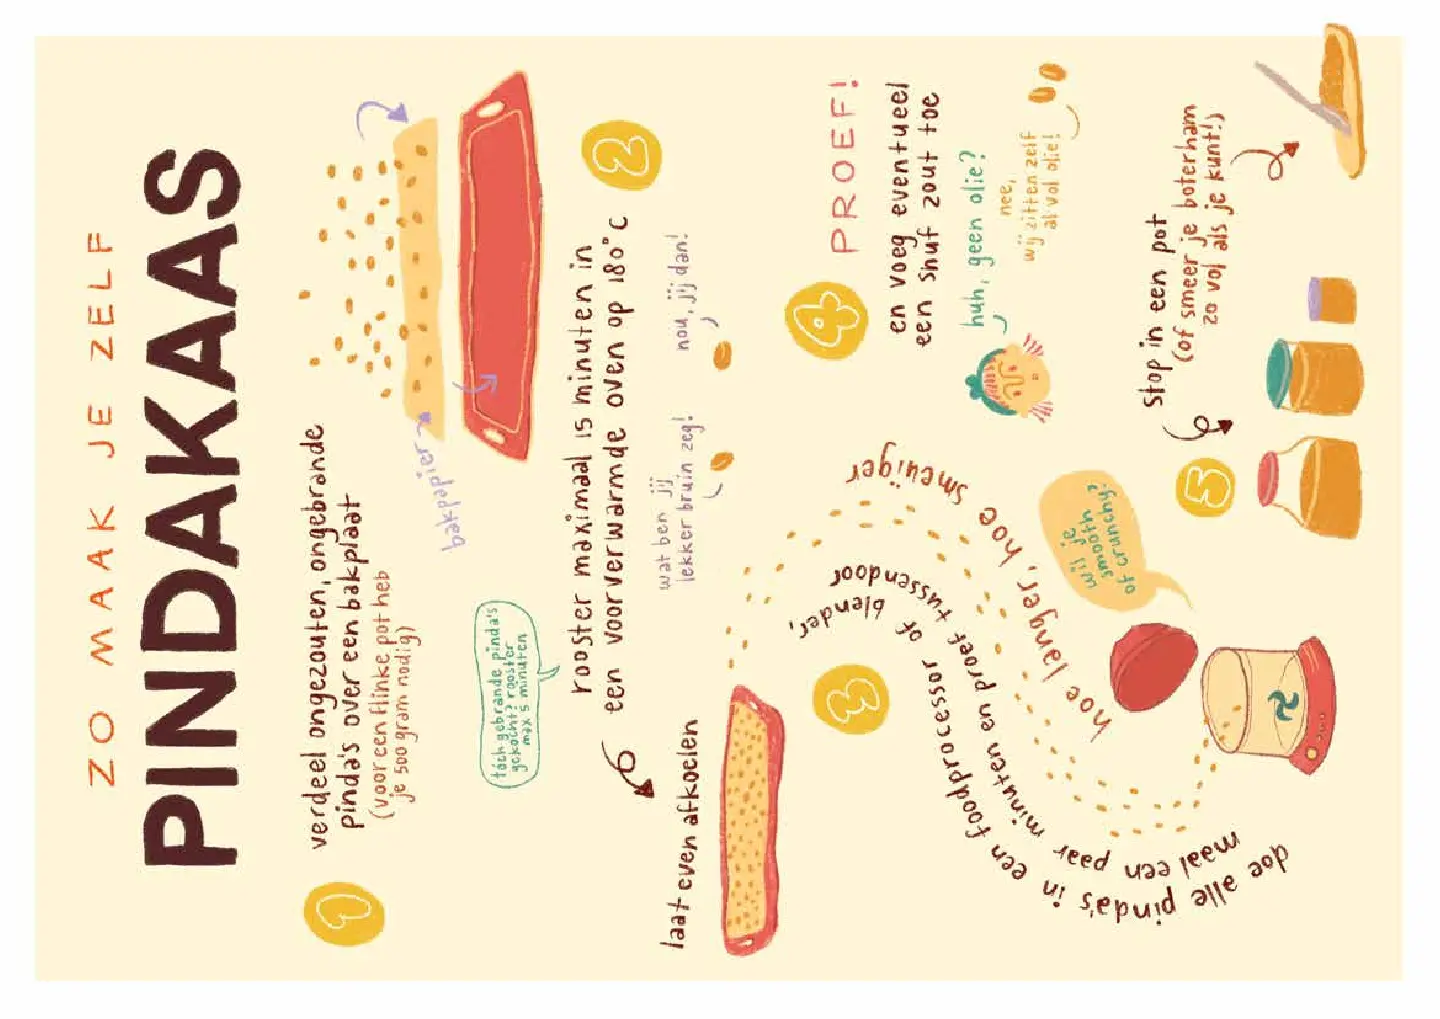 ZO MAAK JE ZELF
PINDAKAAS
1
verdeel ongezouten, ongebrande
pinda's over een bakplaat
(voor een flinke pot heb
je 500 gram nodig)
bakpapier
tóch gebrande pinda's
gekocht? rooster
max 5 minuten
2
rooster maximaal 15 minuten in
een voorverwarmde oven op 180°C
wat ben jij
lekker bruin zeg!
nou, jij dan!
laat even afkoelen
3
doe alle pinda's in een foodprocessor of blender,
maal een paar minuten en proef tussendoor
hoe langer, hoe smeuïger
wil je
smooth
of crunchy?
4
PROEF!
en voeg eventueel
een snuf zout toe
huh, geen olie?
nee,
wij zitten zelf
al vol olie!
5
stop in een pot
(of smeer je boterham
zo vol als je kunt!)